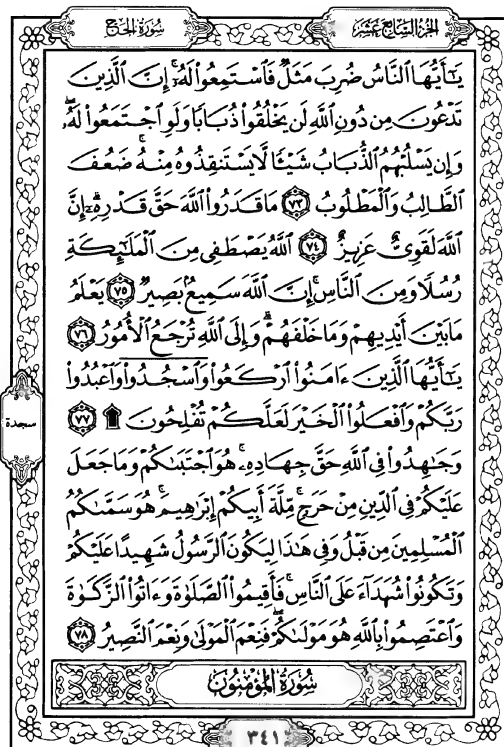 الجزء السابع عشر
سورة الحج
يَٰٓأَيُّهَا ٱلنَّاسُ ضُرِبَ مَثَلٌ فَٱسْتَمِعُوا۟ لَهُۥٓ ۚ إِنَّ ٱلَّذِينَ
تَدْعُونَ مِن دُونِ ٱللَّهِ لَن يَخْلُقُوا۟ ذُبَابًا وَلَوِ ٱجْتَمَعُوا۟ لَهُۥ ۖ
وَإِن يَسْلُبْهُمُ ٱلذُّبَابُ شَيْـًٔا لَّا يَسْتَنقِذُوهُ مِنْهُ ۚ ضَعُفَ
ٱلطَّالِبُ وَٱلْمَطْلُوبُ ٧٣ مَا قَدَرُوا۟ ٱللَّهَ حَقَّ قَدْرِهِۦٓ ۗ إِنَّ
ٱللَّهَ لَقَوِىٌّ عَزِيزٌ ٧٤ ٱللَّهُ يَصْطَفِى مِنَ ٱلْمَلَٰٓئِكَةِ
رُسُلًا وَمِنَ ٱلنَّاسِ ۚ إِنَّ ٱللَّهَ سَمِيعٌۢ بَصِيرٌ ٧٥ يَعْلَمُ
مَا بَيْنَ أَيْدِيهِمْ وَمَا خَلْفَهُمْ ۗ وَإِلَى ٱللَّهِ تُرْجَعُ ٱلْأُمُورُ ٧٦
يَٰٓأَيُّهَا ٱلَّذِينَ ءَامَنُوا۟ ٱرْكَعُوا۟ وَٱسْجُدُوا۟ وَٱعْبُدُوا۟
رَبَّكُمْ وَٱفْعَلُوا۟ ٱلْخَيْرَ لَعَلَّكُمْ تُفْلِحُونَ ۩ ٧٧
سجدة
وَجَٰهِدُوا۟ فِى ٱللَّهِ حَقَّ جِهَادِهِۦ ۚ هُوَ ٱجْتَبَىٰكُمْ وَمَا جَعَلَ
عَلَيْكُمْ فِى ٱلدِّينِ مِنْ حَرَجٍ ۚ مِّلَّةَ أَبِيكُمْ إِبْرَٰهِيمَ ۚ هُوَ سَمَّىٰكُمُ
ٱلْمُسْلِمِينَ مِن قَبْلُ وَفِى هَٰذَا لِيَكُونَ ٱلرَّسُولُ شَهِيدًا عَلَيْكُمْ
وَتَكُونُوا۟ شُهَدَآءَ عَلَى ٱلنَّاسِ ۚ فَأَقِيمُوا۟ ٱلصَّلَوٰةَ وَءَاتُوا۟ ٱلزَّكَوٰةَ
وَٱعْتَصِمُوا۟ بِٱللَّهِ هُوَ مَوْلَىٰكُمْ ۖ فَنِعْمَ ٱلْمَوْلَىٰ وَنِعْمَ ٱلنَّصِيرُ ٧٨
سُورَةُ المُؤْمِنُونَ
٣٤١